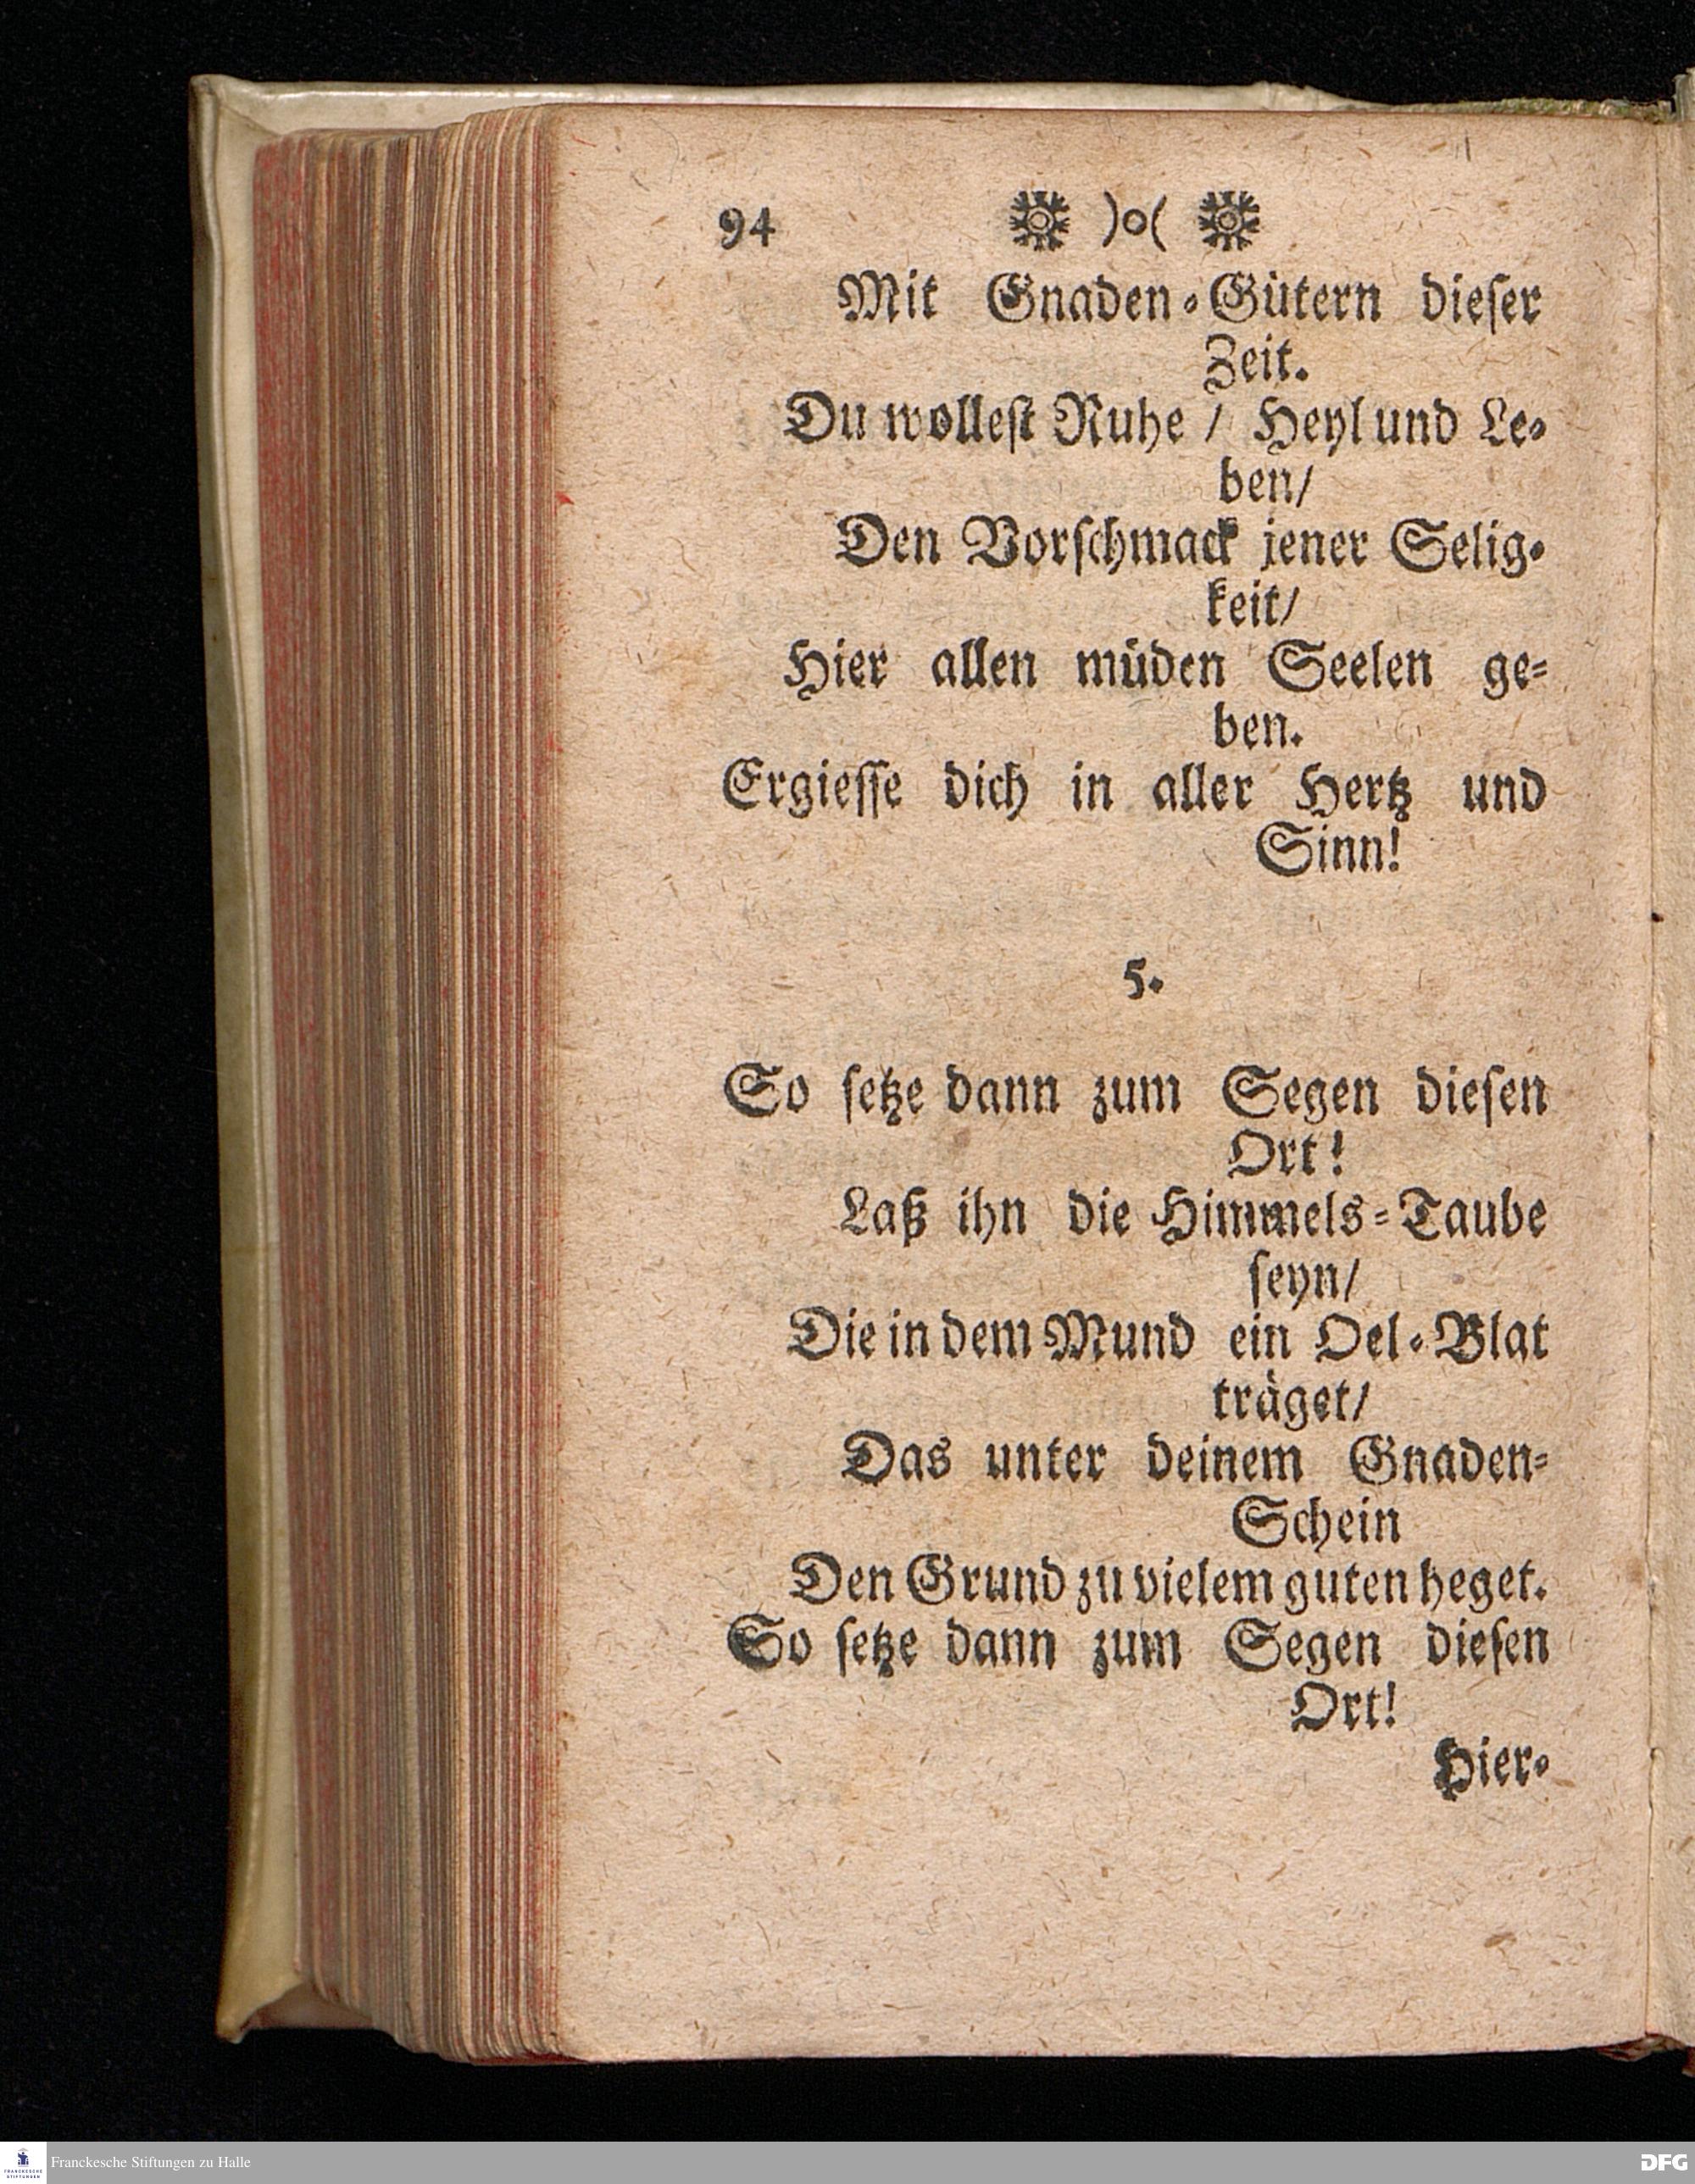 94 )o(
Mit Gnaden-Gütern dieser
Zeit.
Du wollest Ruhe / Heyl und Le-
ben/
Den Vorschmack jener Selig-
keit/
Hier allen müden Seelen ge-
ben.
Ergiesse dich in aller Hertz und
Sinn!
5.
So setze dann zum Segen diesen
Ort!
Laß ihn die Himmels-Taube
seyn/
Die in dem Mund ein Oel-Blat
träget/
Das unter deinem Gnaden-
Schein
Den Grund zu vielem guten heget.
So setze dann zum Segen diesen
Ort!
Hier-
FRANCKESCHE
STIFTUNGEN
Franckesche Stiftungen zu Halle
DFG